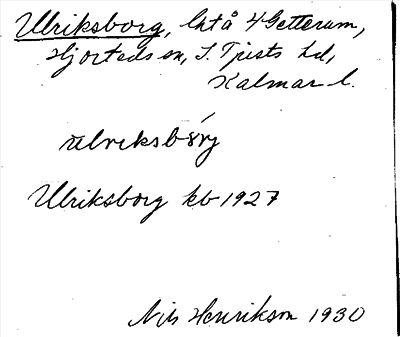 Ulriksborg, lht å Y Getterum,
Hjorteds sn, S. Tjusts hd,
Kalmar l.
ulriksbǒrj
Ulriksborg kb 1927
Nils Henrikson 1930